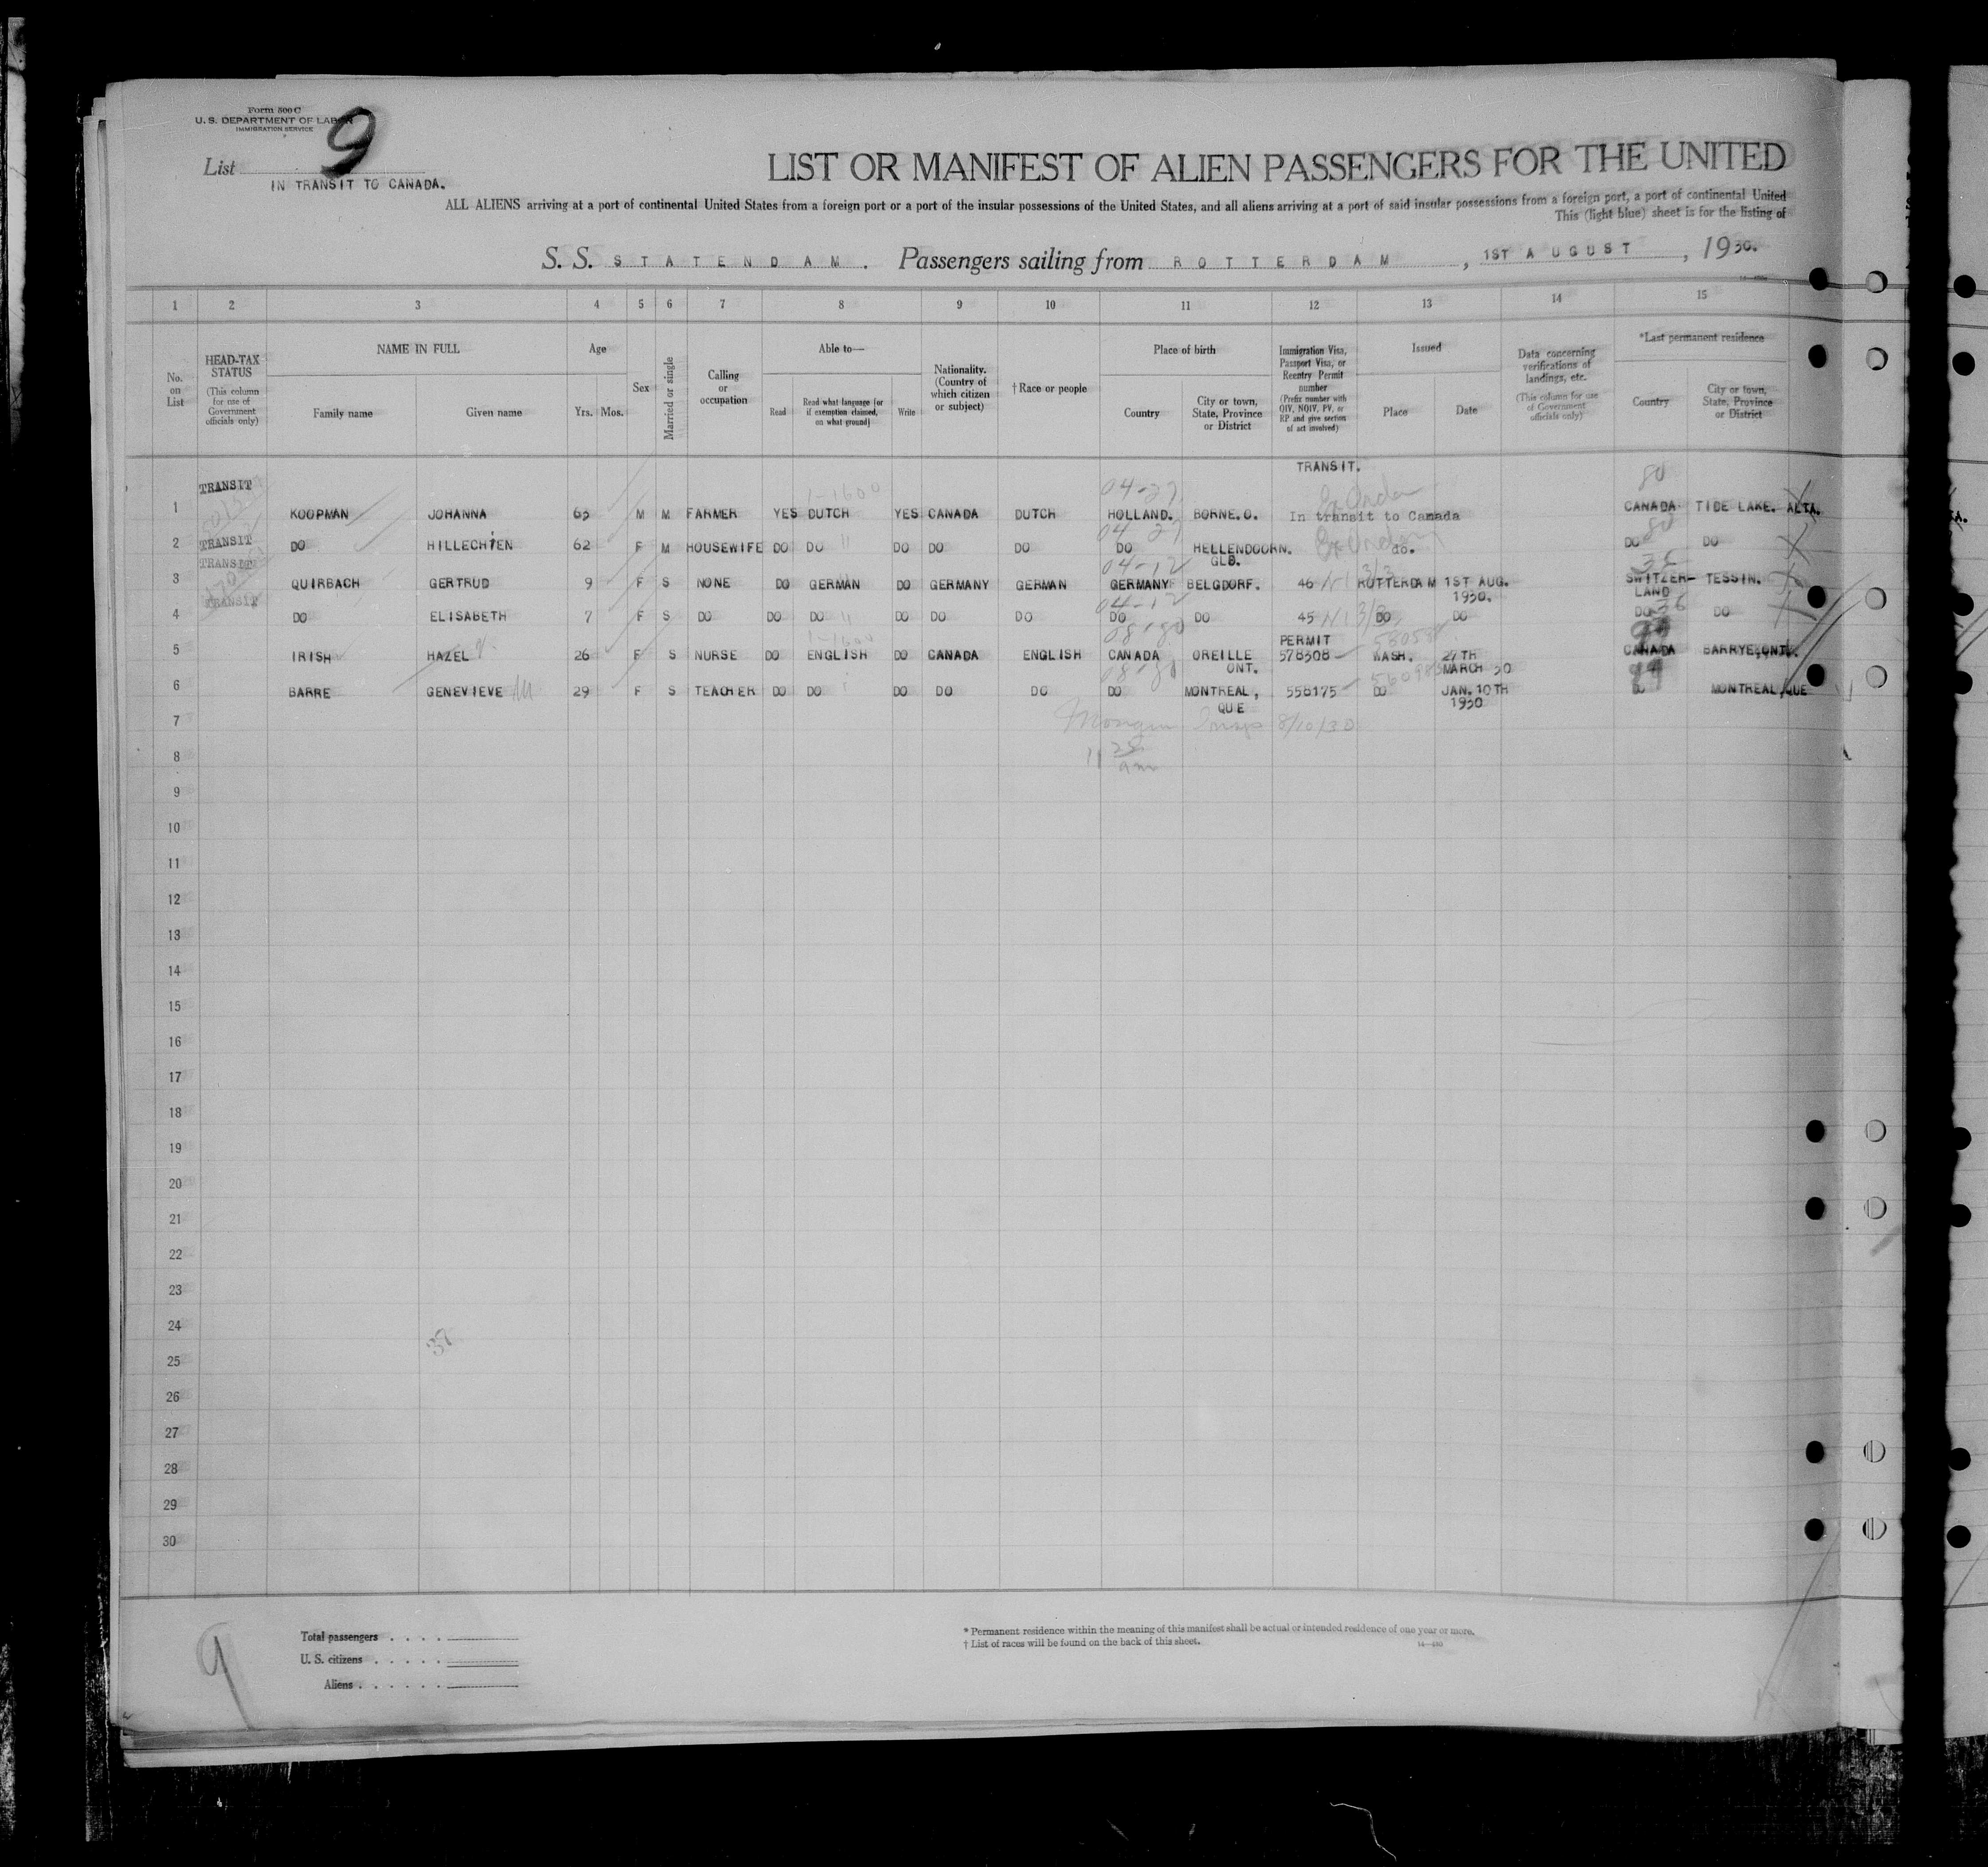 Form 500 C
U. S. DEPARTMENT OF LABOR
IMMIGRATION SERVICE
List 9
IN TRANSIT TO CANADA.
LIST OR MANIFEST OF ALIEN PASSENGERS FOR THE UNITED
ALL ALIENS arriving at a port of continental United States from a foreign port or a port of the insular possessions of the United States, and all aliens arriving at a port of said insular possessions from a foreign port, a port of continental United
This (light blue) sheet is for the listing of
S. S. STATENDAM. Passengers sailing from ROTTERDAM, 1ST AUGUST, 1930.
1 2 3 4 5 6 7 8 9 10 11 12 13 14 15
No. on List
HEAD-TAX STATUS
(This column for use of Government officials only)
NAME IN FULL
Family name Given name
Age
Yrs. Mos.
Sex
Married or single
Calling or occupation
Able to—
Read Read what language (or if exemption claimed, on what ground) Write
Nationality. (Country of which citizen or subject)
† Race or people
Place of birth
Country City or town, State, Province or District
Immigration Visa, Passport Visa, or Reentry Permit number
(Prefix number with QIV, NQIV, PV, or RP and give section of act involved)
Issued
Place Date
Data concerning verifications of landings, etc.
(This column for use of Government officials only)
*Last permanent residence
Country City or town, State, Province or District
TRANSIT.
TRANSIT 1-1600 04-27 80
1 KOOPMAN JOHANNA 65 M M FARMER YES DUTCH YES CANADA DUTCH HOLLAND. BORNE.O. In transit to Canada CANADA TIDE LAKE. ALTA.
04 27 80
2 TRANSIT DO HILLECHIEN 62 F M HOUSEWIFE DO DO " DO DO DO DO HELLENDOORN. do. DO DO
TRANSIT 04-12 GLD. 36
3 QUIRBACH GERTRUD 9 F S NONE DO GERMAN DO GERMANY GERMAN GERMANY BELGDORF. 46 ROTTERDAM 1ST AUG. SWITZER- TESSIN.
TRANSIT 04-12 1930. LAND
4 DO ELISABETH 7 F S DO DO DO " DO DO DO DO DO 45 DO DO DO 36 DO
1-1600 08-80 PERMIT
5 IRISH HAZEL 26 F S NURSE DO ENGLISH DO CANADA ENGLISH CANADA OREILLE 578308 WASH. 27TH CANADA BARRYE, ONT.
08-80 ONT. MARCH 30
6 BARRE GENEVIEVE M 29 F S TEACHER DO DO DO DO DO DO MONTREAL, 558175 DO JAN. 10TH DO MONTREAL, QUE
QUE 1930
7 Insp 8/10/30
8 11 25 am
9
10
11
12
13
14
15
16
17
18
19
20
21
22
23
24
37
25
26
27
28
29
30
9
Total passengers
U. S. citizens
Aliens
* Permanent residence within the meaning of this manifest shall be actual or intended residence of one year or more.
† List of races will be found on the back of this sheet.